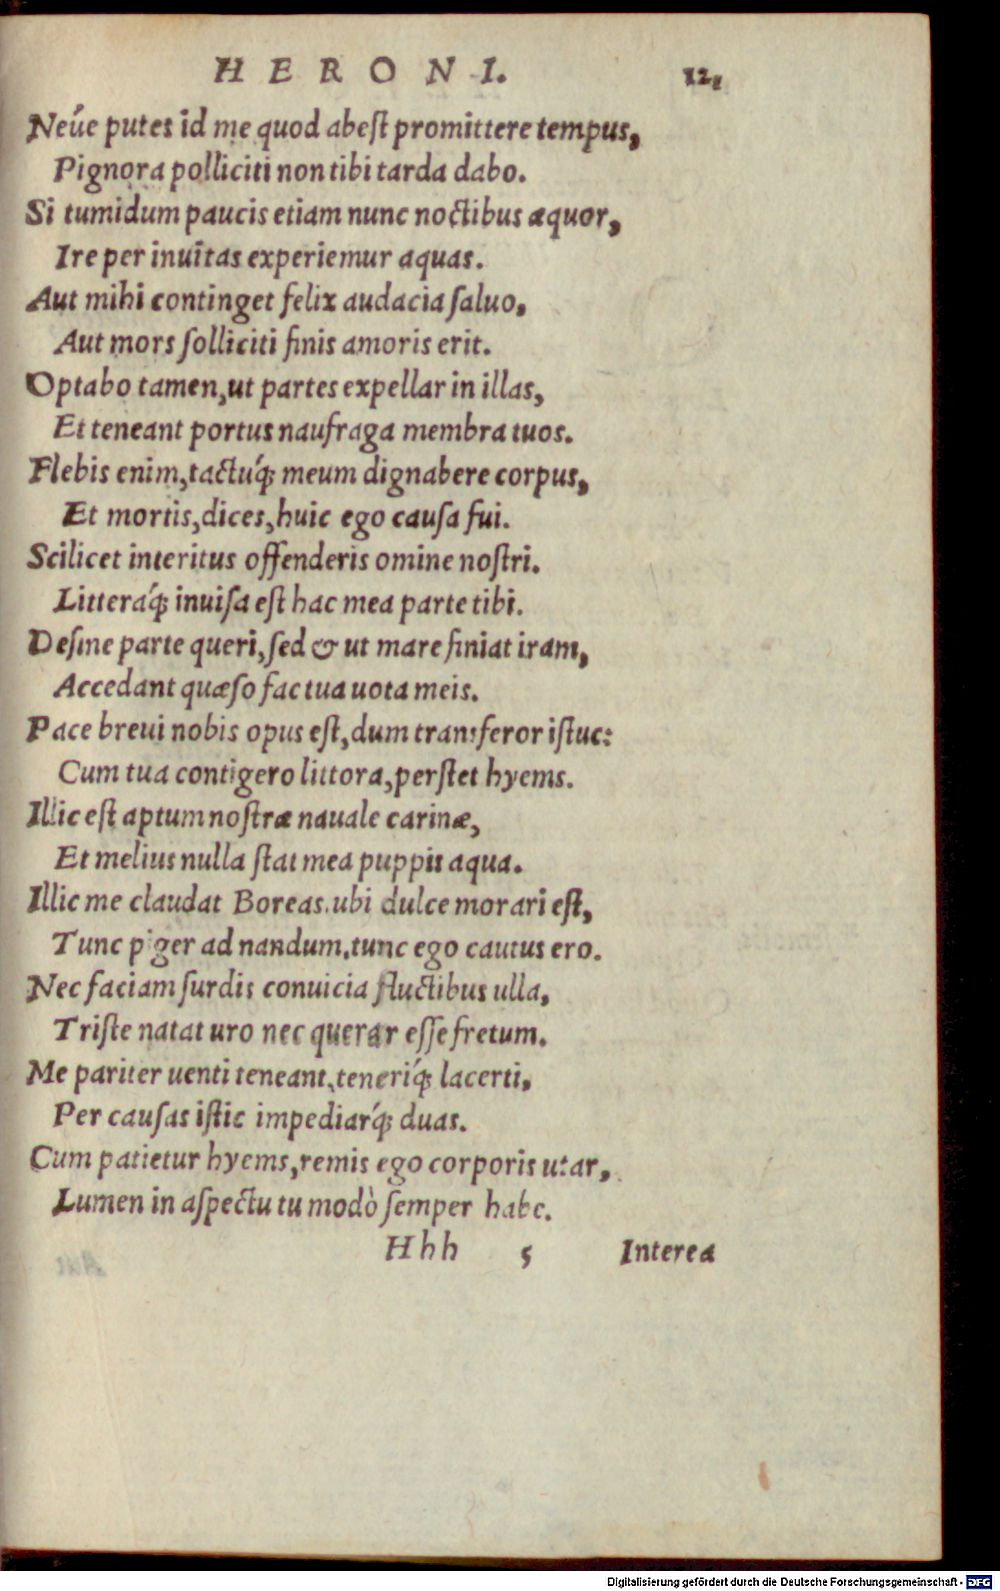 HERONI. 12,
Neúe putes id me quod abest promittere tempus,
Pignora polliciti non tibi tarda dabo.
Si tumidum paucis etiam nunc noctibus æquor,
Ire per inuitas experiemur aquas.
Aut mihi continget felix audacia saluo,
Aut mors solliciti finis amoris erit.
Optabo tamen, ut partes expellar in illas,
Et teneant portus naufraga membra tuos.
Flebis enim, tactuq́; meum dignabere corpus,
Et mortis, dices, huic ego causa fui.
Scilicet interitus offenderis omine nostri.
Litteraq́; inuisa est hac mea parte tibi.
Desine parte queri, sed & ut mare finiat iram,
Accedant quæso fac tua uota meis.
Pace breui nobis opus est, dum transferor istuc:
Cum tua contigero littora, perstet hyems.
Illic est aptum nostræ nauale carinæ,
Et melius nulla stat mea puppis aqua.
Illic me claudat Boreas. ubi dulce morari est,
Tunc piger ad nandum. tunc ego cautus ero.
Nec faciam surdis conuicia fluctibus ulla,
Triste natat uro nec querar esse fretum.
Me pariter uenti teneant, teneriq́; lacerti,
Per causas istic impediarq́; duas.
Cum patietur hyems, remis ego corporis utar,
Lumen in aspectu tu modò semper habe.
Hhh 5 Interea
Digitalisierung gefördert durch die Deutsche Forschungsgemeinschaft - DFG